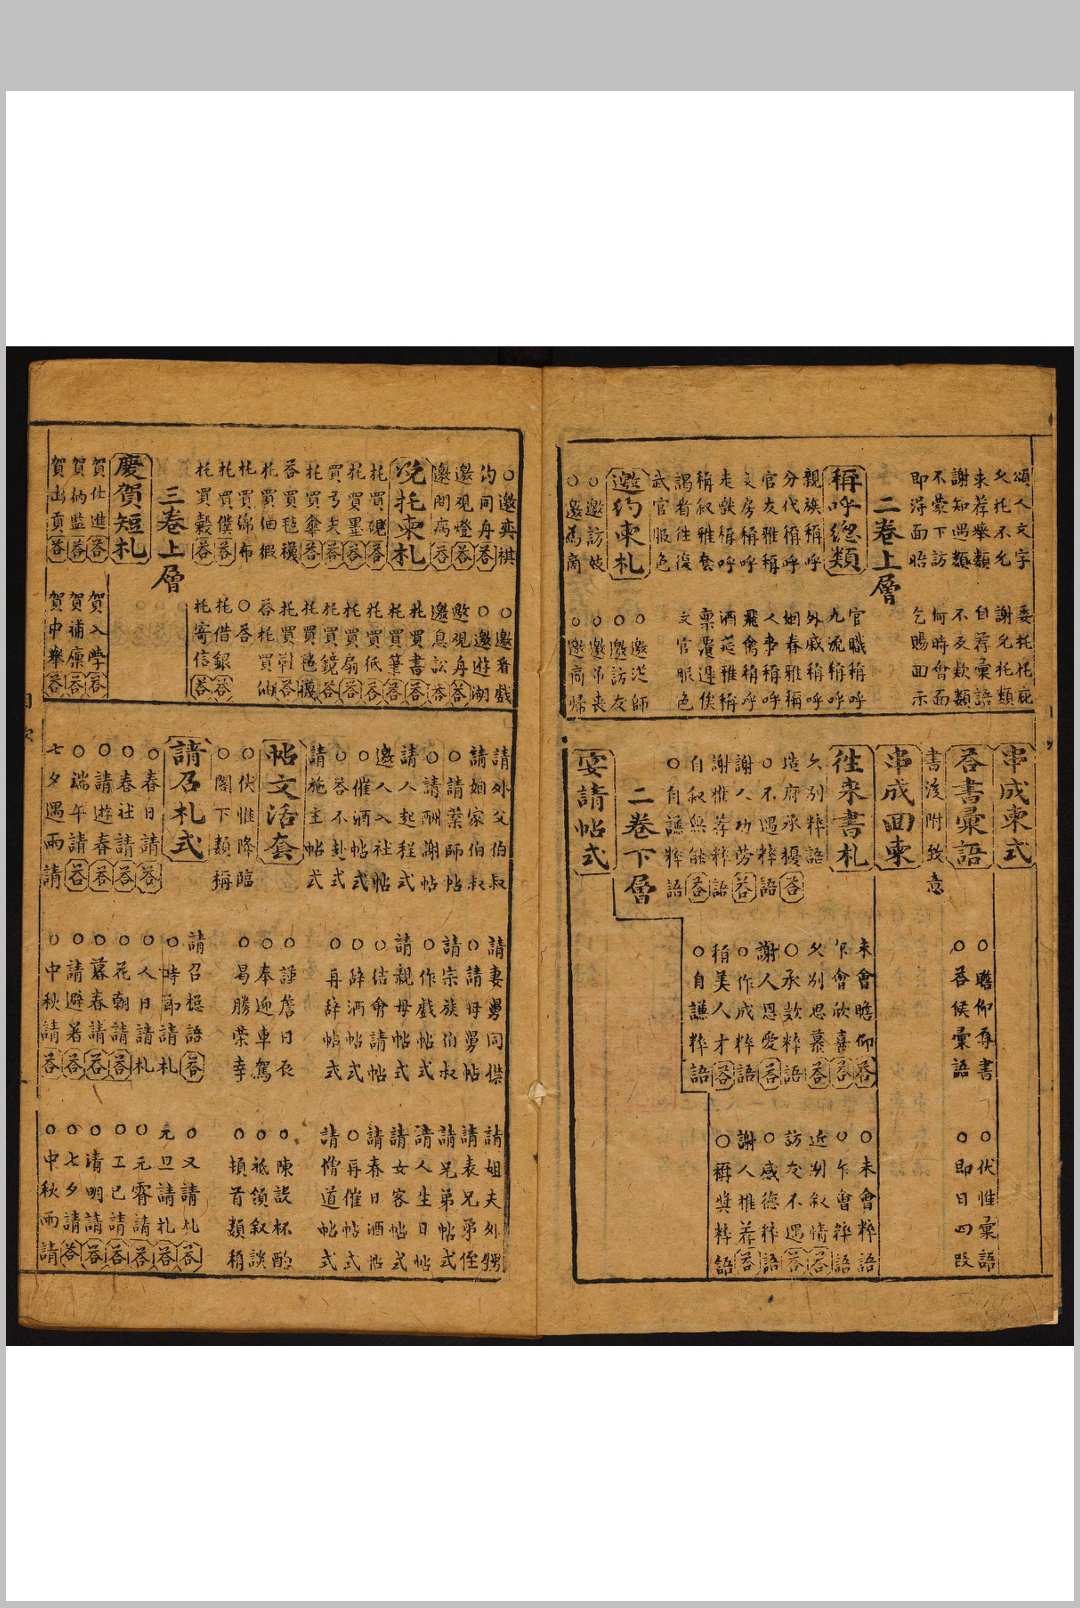 頌人文字 委托托庇
允托不允 謝允托類
求荐舉類 自荐彙語
謝知遇類 不及数類
不蒙下訪 何時會面
即得面晤 乞賜面示
二卷上層
稱呼總類
官職稱呼
親族稱呼 外戚稱呼
分代稱呼 姻眷雅稱
官友雅稱 人事稱呼
文房稱呼 飛禽稱呼
走獸稱呼 酒菜雅稱
稱叙雅套 禀覆過俟
謁者往復 文官服色
武官服色
邀約柬札
○邀從師
○邀訪妓 ○邀訪友
○邀為商 ○邀商歸
串成柬式
○瞻仰尊書 ○伏惟彙語
答書彙語
○答候彙語 ○即日四段
書後附致意
串成回柬
往來書札
未會瞻仰答 ○未會粹語
乍會欣喜答 ○乍會粹語
久別粹語 久別思慕答 近朔叙情答
造府承擾答 ○承欵粹語 訪友不遇答
○不遇粹語 謝人恩愛答 ○感德粹語
謝人功勞答 ○作成粹語 謝人推荐答
謝推荐粹語 稱美人才答 ○稱奬粹語
自叙無能答 ○自謙粹語
○自謙粹語
二卷下層
宴請帖式
○邀奕棋 ○邀看戲
約同舟答 ○邀遊湖
邀观燈答 邀观舟答
邀問病答 邀息訟答
浼托柬札
托買書答
托買筆答
托買硯答 托買紙答
托買墨答 托買扇答
買弓矢答 托買鏡答
托買傘答
答買毡襪 托買鞋答
托買紬緞 答托買油
托買綿布 ○答
托買僕答 托借銀答
托買穀答 托寄信答
三卷上層
慶賀短札
賀仕進答 賀入學答
賀納監答 賀補廩答
賀出貢答 賀中舉答
請外父伯叔 請妻舅同襟 請姐夫外甥
請姻家伯叔 ○請母舅帖 請表兄弟侄
○請業師帖 請宗族伯叔 請兄弟帖式
○請酬謝帖 ○作戲帖式 請人生日帖
請人起程式 請親母帖式 請女客帖式
邀人入社帖 ○結會請帖 請春日酒帖
○催酒帖式 ○辞酒帖式 ○再催帖式
○答不赴式 ○再辞帖式 請僧道帖式
請施主帖式
帖文活套
○謹詹日辰 ○陳設杯酌
○伏惟降臨 ○奉迎車駕 ○祗領叙談
○閣下類稱 ○曷勝榮幸 ○頓首類稱
請召札式
請召總語答 ○又請札答
○時節請札 元旦請札答
○春日請答 ○人日請札 ○元宵請答
○春社請答 ○花朝請答 ○上巳請答
○請遊春答 ○暮春請答 ○清明請答
○端午請答 ○請避暑答 ○七夕請答
七夕遇雨請 ○中秋請答 ○中秋雨請